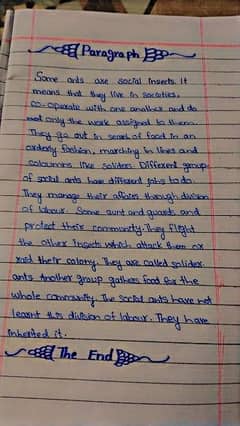 Paragraph
Some ants are social insects. It
means that they live in societies,
co-operate with one another and do
only the work assigned to them.
They go out in serach of food in an
orderly fashion, marching in lines and
coloumns like soliders. Different group
of social ants have different jobs to do.
They manage their affairs through division
of labour. Some aunt and guards and
protect their community. They flight
the other insects which attack them or
raid their colony. They are called solider
ants Another group gathers food for the
whole community. The social ants have not
learnt this division of labour. They have
inherited it.
The End